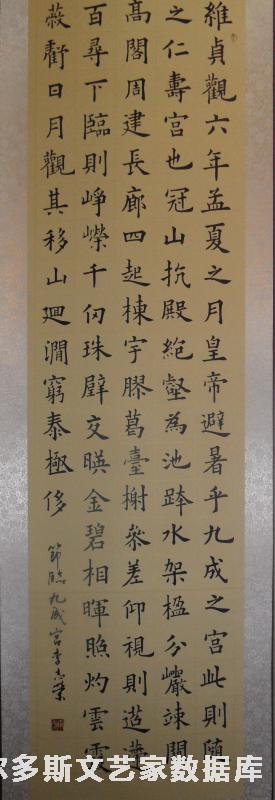 維貞觀六年孟夏之月皇帝避暑乎九成之宮此則隨
之仁壽宮也冠山抗殿絶壑為池跨水架楹分巖竦闕
高閣周建長廊四起棟宇膠葛臺榭參差仰視則迢遰
百尋下臨則崢嶸千仞珠壁交暎金碧相暉照灼雲霞
蔽虧日月觀其移山迴澗窮泰極侈
節臨九成宮李志榮
尔多斯文艺家数据库